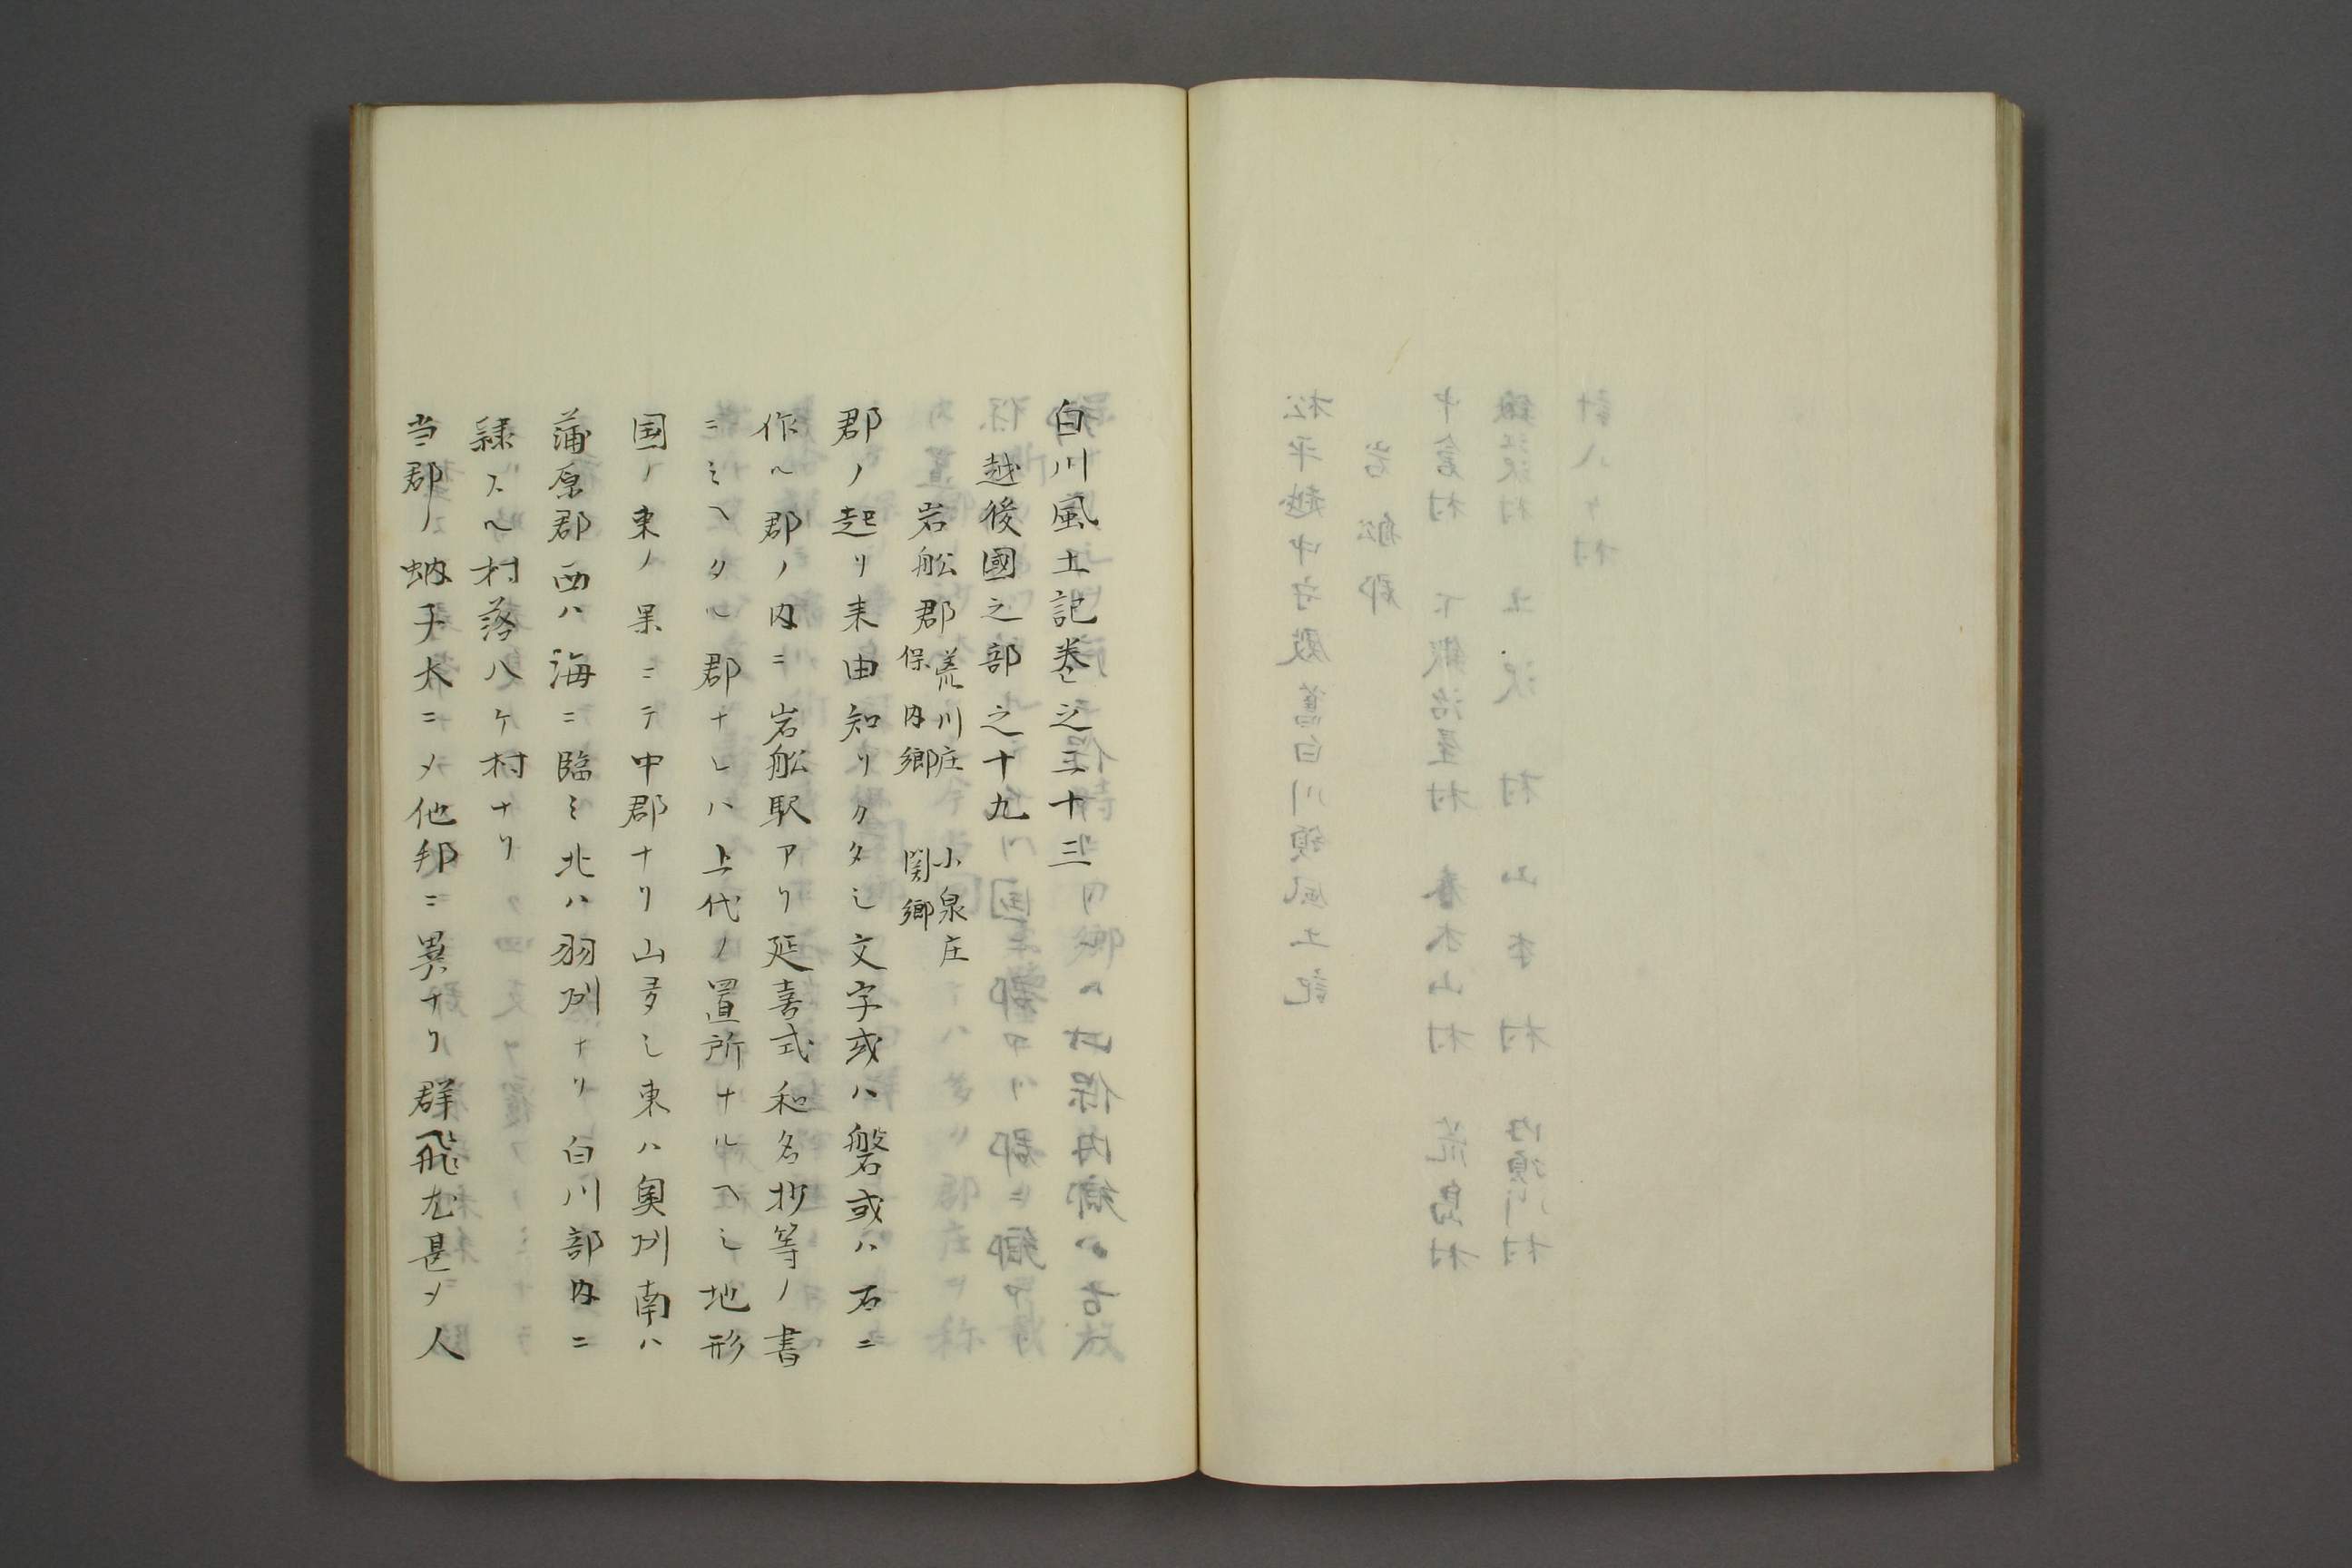 白川風土記巻之三十三
越後國之部之十九
岩舩郡 荒川庄 小泉庄
保内郷 関郷
郡ノ起リ来由知リクタシ文字或ハ磐或ハ石ニ
作ル郡ノ内ニ岩舩駅アリ延喜式和名抄等ノ書
ニミヘタル郡ナレハ上代ノ置所ナルヘシ地形
国ノ東ノ果ニテ中郡ナリ山多シ東ハ奥州南ハ
蒲原郡西ハ海ニ臨ミ北ハ羽州ナリ白川部内ニ
緑スル村落八ケ村ナリ
当郡ノ蚋子大ニメ他邦ニ異ナリ群飛尤甚メ人